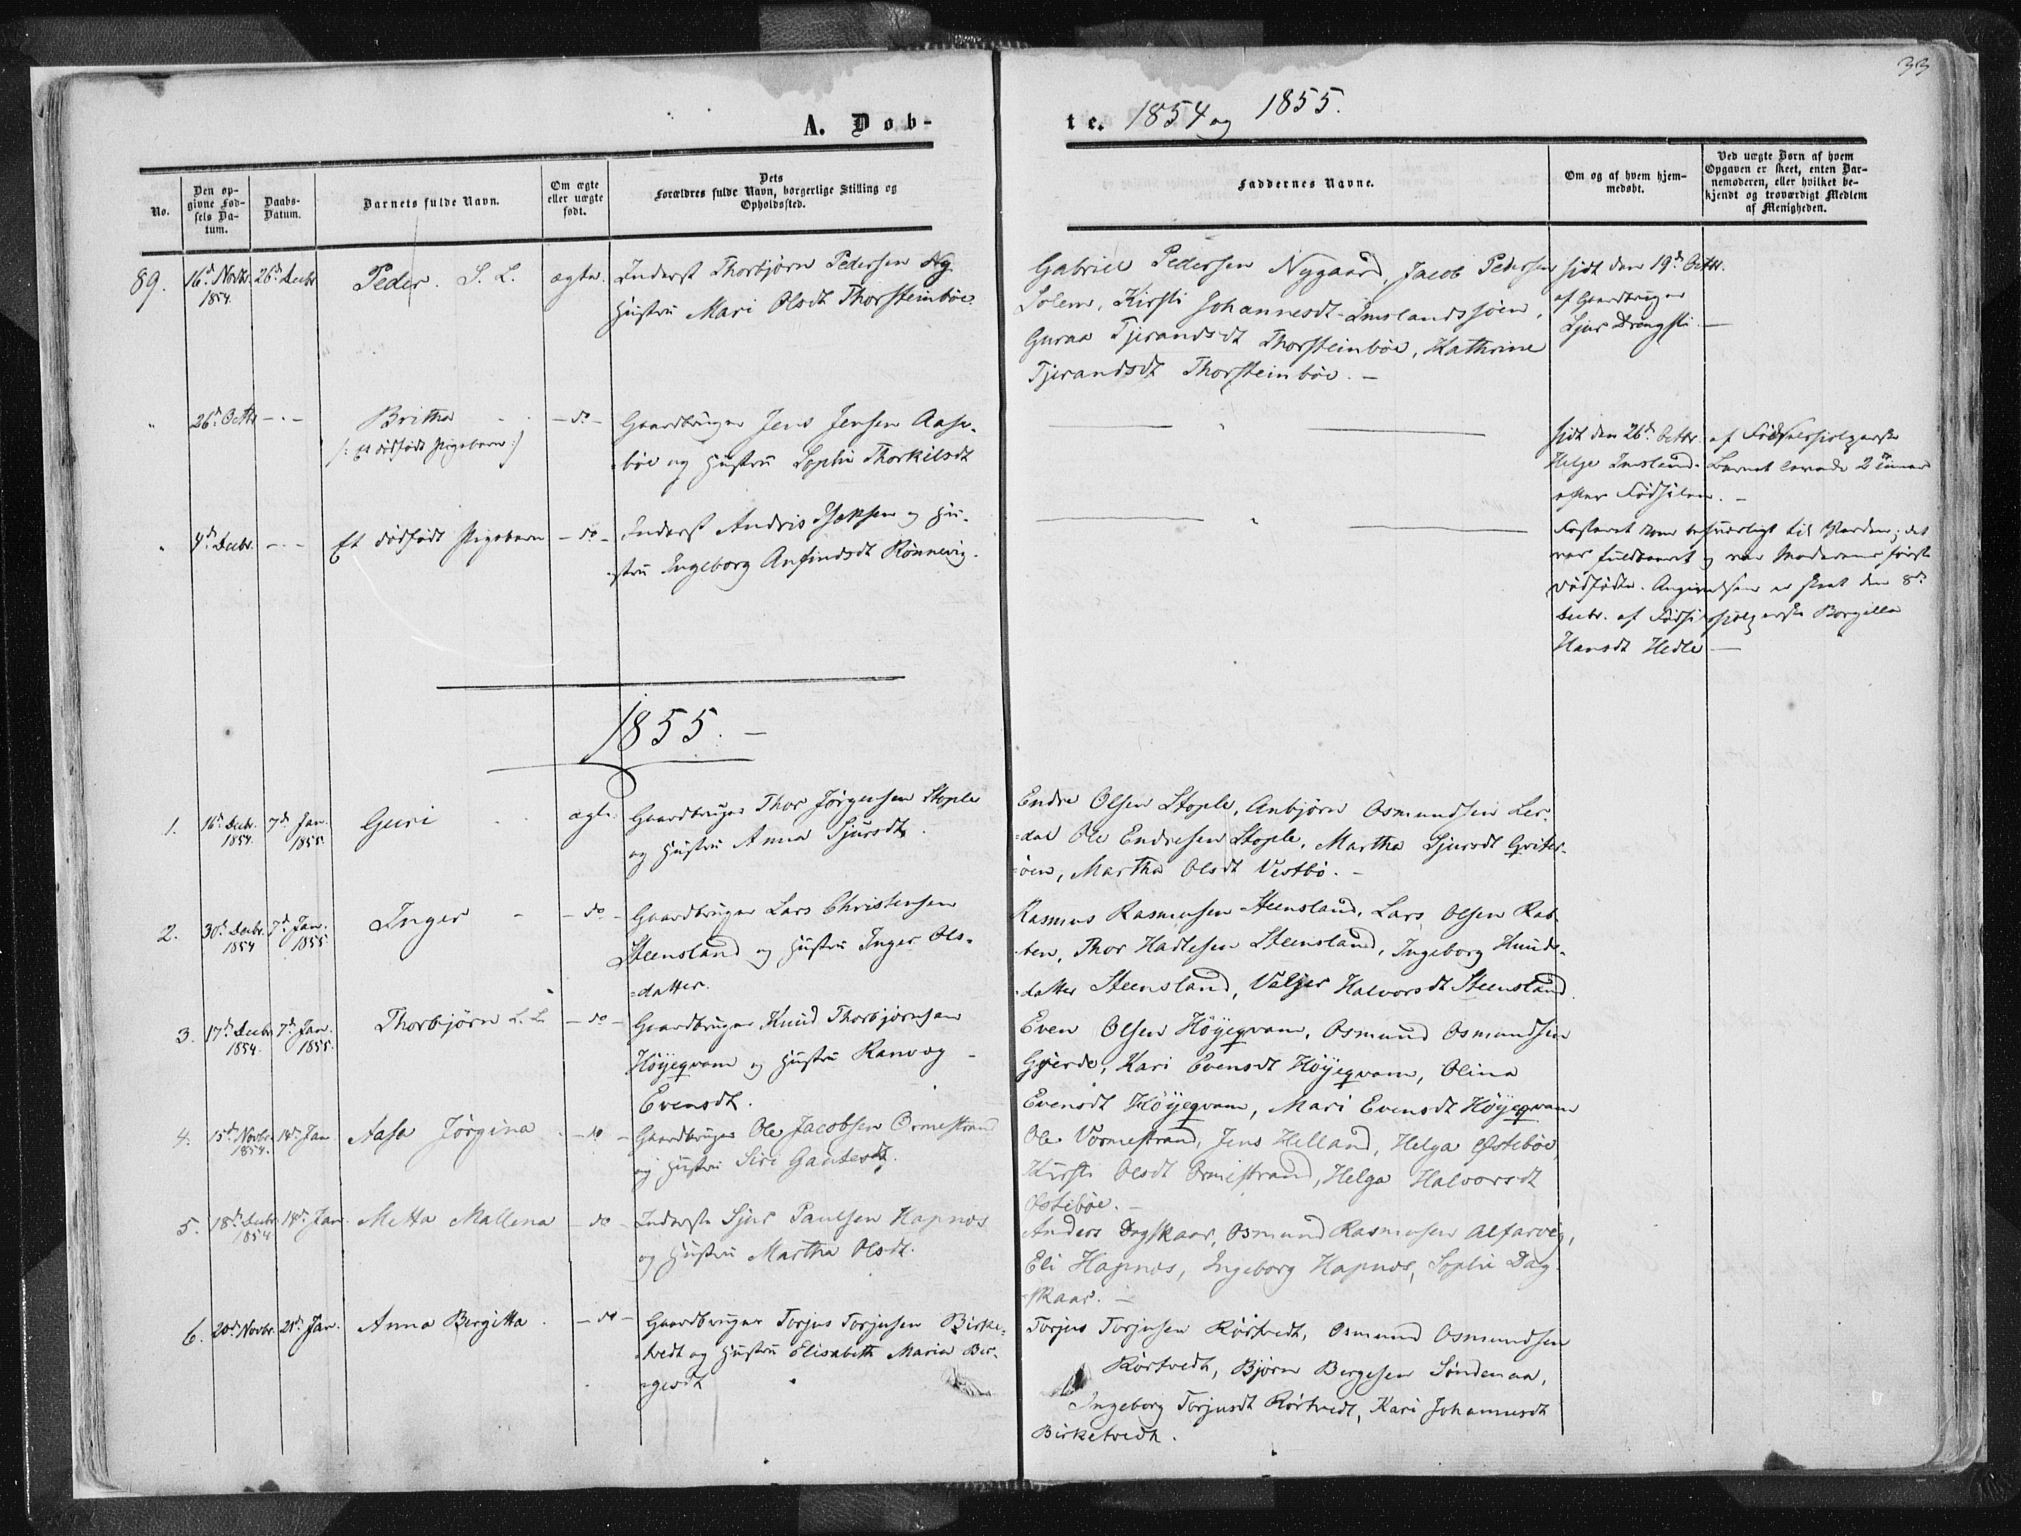 33
A. Døb-
te. 1854 og 1855.
No.
Den op-
givne Fød-
sels Da-
tum.
Daabs-
Datum.
Barnets fulde Navn.
Om ægte
eller uægte
født.
Dets
Forældres fulde Navn, borgerlige Stilling og
Opholdssted.
Faddernes Navne.
Om og af hvem hjem-
medøbt.
Ved uægte Børn af hvem
Opgaven er skeet, enten Bar-
nemoderen, eller hvilket be-
kjendt og troværdigt Medlem
af Menigheden.
89.
16d Novbr
1854.
26d Decbr
Peder. S. L.
ægte.
Inderst Thorbjørn Pedersen og
Hustru Mari Olsdt Thorsteinbøe
Gabriel Pedersen Nygaard, Jacob Pedersen
Solem, Kirsti Johannesdt Imslandssjøen,
Guraa Tjerandsdt Thorsteinbøe, Kathrine
Tjerandsdt Thorsteinbøe. -
hjdt den 19d Octbr.
af Gaardbruger
Sjur Drengsti. -
"
26d Octbr
- . -
Britha
/: Et dødfødt Pigebarn :/
- do -
Gaardbruger Jens Jensen Aase-
bøe og Hustru Sophie Thorkilsdt
hjdt den 26d Octbr. af Fødselshjelperske
Helge Imsland. Barnet levede 2 Timer
efter Fødselen. -
"
4d Decbr.
- . -
Et dødfødt Pigebarn
- do -
Inderst Andris Isaksen og Hu-
stru Ingeborg Anfindsdt Rønnevig.
Fosteret kom besværligt til Verden; det
var fuldbaaret og var Moderens første
dødfødte. Angivelsen er skeet den 8d
Decbr. af Fødselshjelperske Borgilla
Hansdt Hedle -
1855. -
1.
16d Decbr.
1854.
7d Jan.
1855.
Guri
ægte.
Gaardbruger Thor Jørgensen Stople
og Hustru Anna Sjursdt.
Endre Olsen Stople, Anbjørn Osmundsen Ler-
dal Ole Endresen Stople, Martha Sjursdt Qviter-
øen, Martha Olsdt Vestbø. -
2.
30d Decbr.
1854
7d Jan.
1855
Inger
- do -
Gaardbruger Lars Christensen
Steensland og Hustru Inger Ols-
datter.
Rasmus Rasmusen Steensland, Lars Olsen Rab-
ben, Thor Hadlesen Steensland, Ingeborg Knuds-
datter Steensland, Valger Halvorsdt Steensland.
3.
17d Decbr
1854.
7d Jan.
1855.
Thorbjørn L. L.
- do -
Gaardbruger Knud Thorbjørnsen
Høyeqvam og Hustru Ranvog -
Evensdt.
Even Olsen Høyeqvam, Osmund Osmundsen
Gjerde, Kari Evensdt Høyeqvam, Olina
Evensdt Høyeqvam, Mari Evensdt Høyeqvam
4.
15d Novbr
1854.
14d Jan
Aasa Jørgina
- do -
Gaardbruger Ole Jacobsen Ormestrand
og Hustru Siri Gautesdt.
Ole Vormestrand, Jens Helland, Helga Østebøe,
Kirsti Olsdt Ormestrand, Helga Halvorsdt
Østebøe. -
5.
18d Decbr
1854
14d Jan.
Metta Mallena
- do -
Inderste Sjur Paulsen Hapnes
og Hustru Martha Olsdt.
Anders Dagskaar, Osmund Rasmusen Alfarvig,
Eli Hapnes, Ingeborg Hapnes, Sophie Dag-
skaar. -
6.
20d Novbr.
21d Jan.
Anna Bergitta
- do -
Gaardbruger Torjus Torjusen Birke-
tvedt og Hustru Elisabeth Maria Bør-
gesdt
Torjus Torjusen Rørtvedt, Osmund Osmundsen
Rørtvedt, Bjørn Børgesen Søndenaa,
Ingeborg Torjusdt Rørtvedt, Kari Johannesdt
Birketvedt.